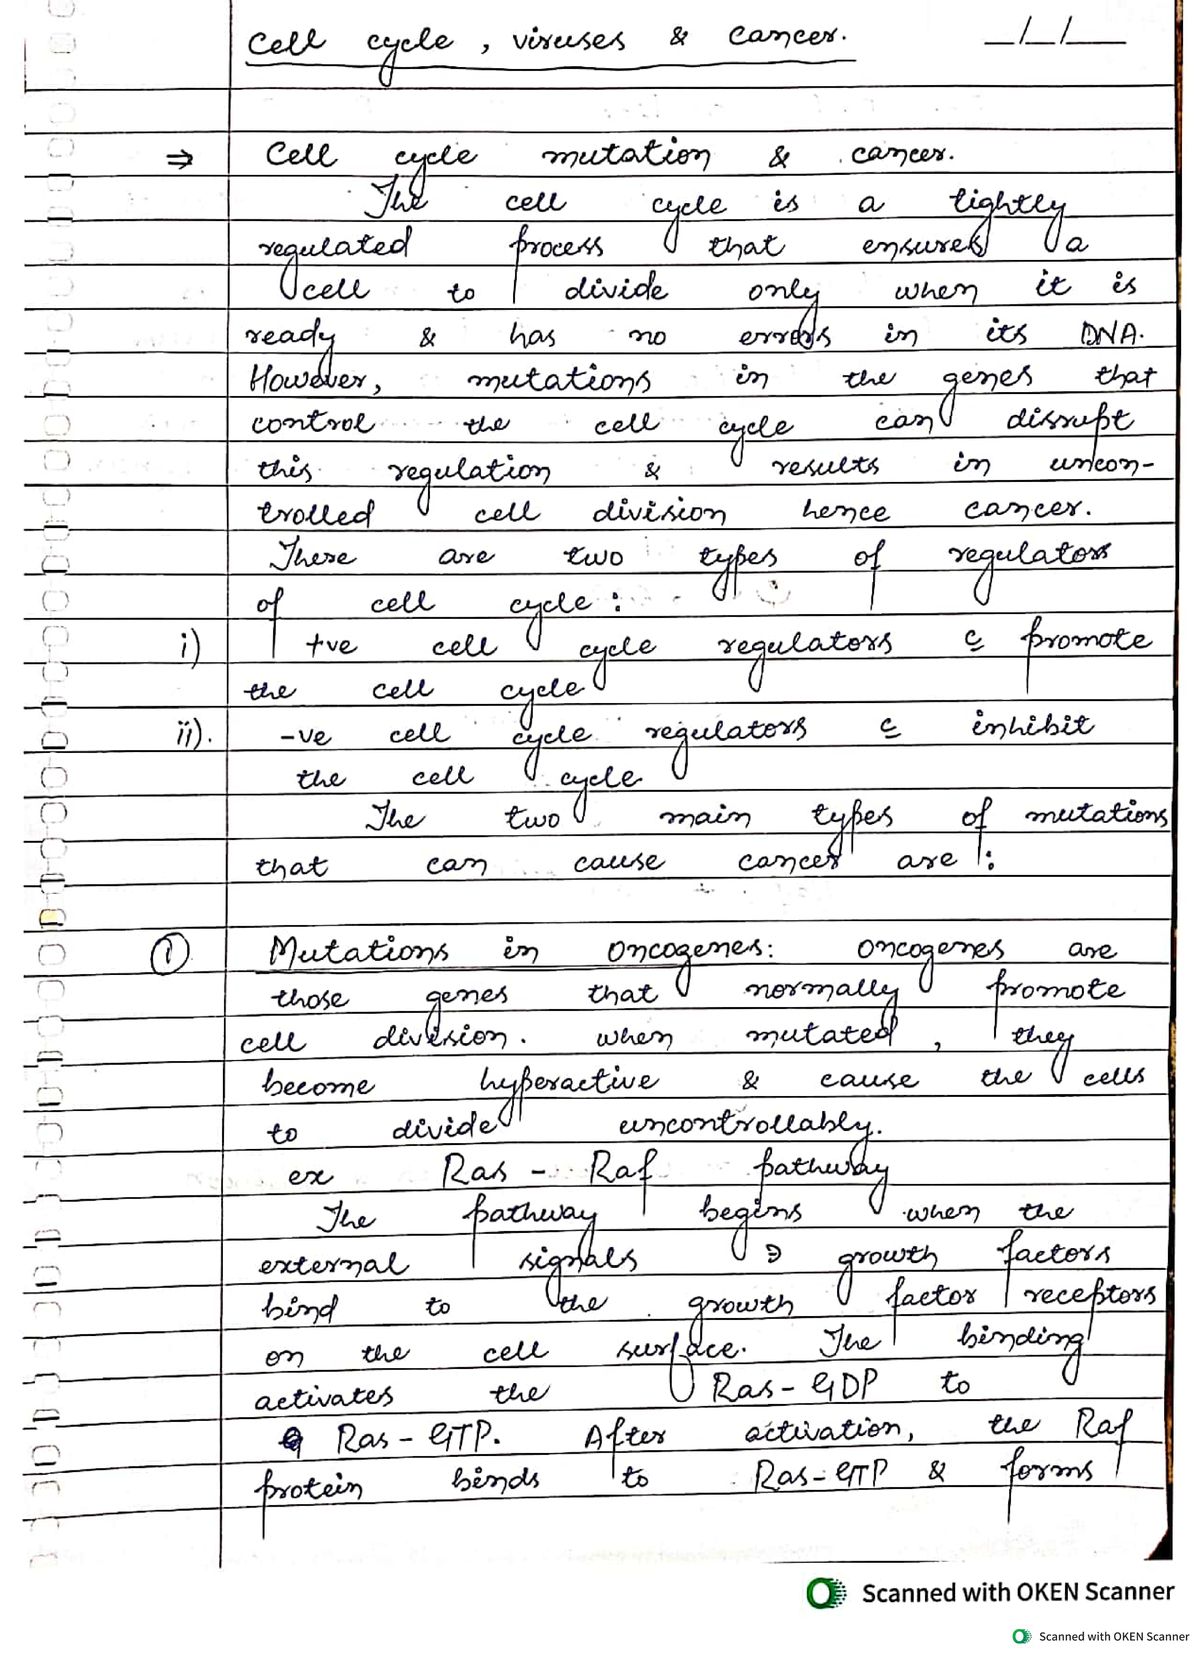 Cell cycle, viruses & cancer. _/_/__
⇒ Cell cycle mutation & cancer.
The cell cycle is a tightly
regulated process that ensures a
cell to divide only when it is
ready & has no errors in its DNA.
However, mutations in the genes that
control the cell cycle can disrupt
this regulation & results in uncon-
trolled cell division hence cancer.
There are two types of regulators
of cell cycle:
i) +ve cell cycle regulators c̲ promote
the cell cycle
ii). -ve cell cycle regulators c̲ inhibit
the cell cycle
The two main types of mutations
that can cause cancer are :
① Mutations in oncogenes: oncogenes are
those genes that normally promote
cell division. when mutated, they
become hyperactive & cause the cells
to divide uncontrollably.
ex Ras - Raf pathway
The pathway begins when the
external signals growth factors
bind to the growth factor receptors
on the cell surface. The binding
activates the Ras-GDP to
Ras-GTP. After activation, the Raf
protein binds to Ras-GTP & forms
Scanned with OKEN Scanner
Scanned with OKEN Scanner